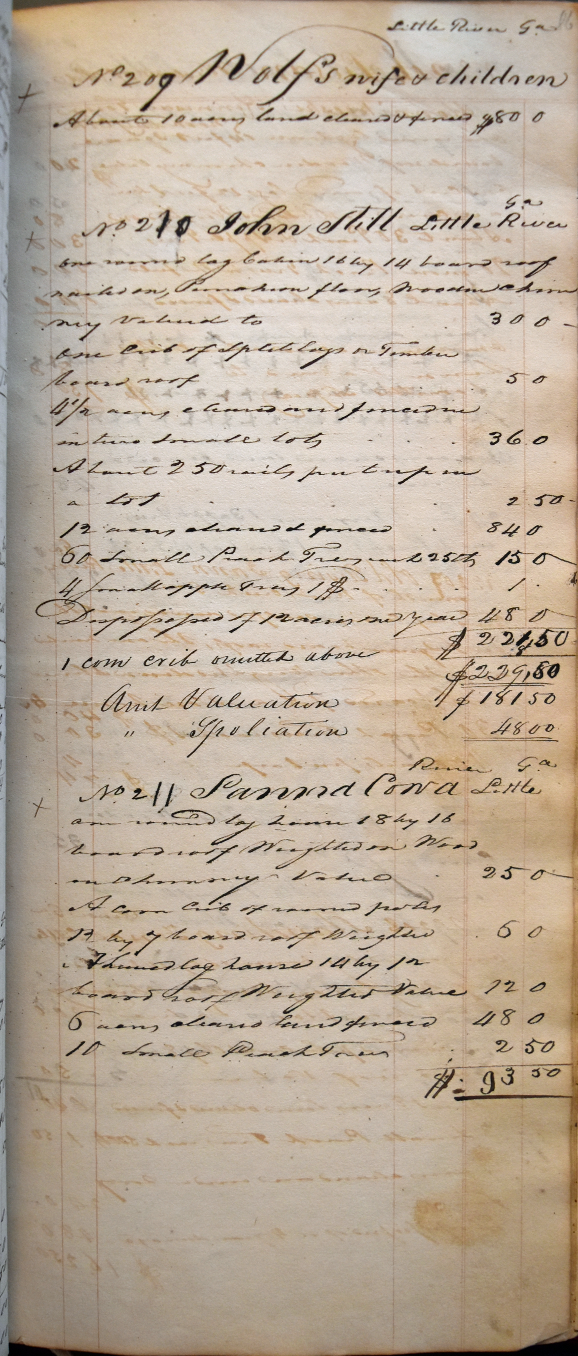 Little River Ga 86
No 209 Wolf's wife & children
About 10 acres land cleared & fenced $80 0
No 210 John Still Little River Ga
one round log Cabin 16 by 14 board roof
nailed on, Puncheon floor, Wooden Chim
ney Valued to 30 0
one Crib of Split logs or Timber
board roof 5 0
4 1/2 acres cleared and fenced in
in two Small lots 36 0
About 250 rails put up in
a lot 2 50
12 acres cleared & fenced 84 0
60 Small Peach Trees each 25cts 15 0
4 Small apple Trees 1$ 1
Dispossessed of 12 acres one year 48 0
$ 221,50
1 corn crib omitted above
$229,50
Amt Valuation $181 50
" Spoliation 48 00
No 211 Cow'd Little River Ga
one round log house 18 by 16
board roof Weighted on Wood
en Chimney Value 25 0
A corn Crib of round poles
12 by 7 board roof Weighted 6 0
A hewed log house 14 by 12
board roof Weighted Value 12 0
6 acres cleared land fenced 48 0
10 Small Peach Trees 2 50
$ 93 50